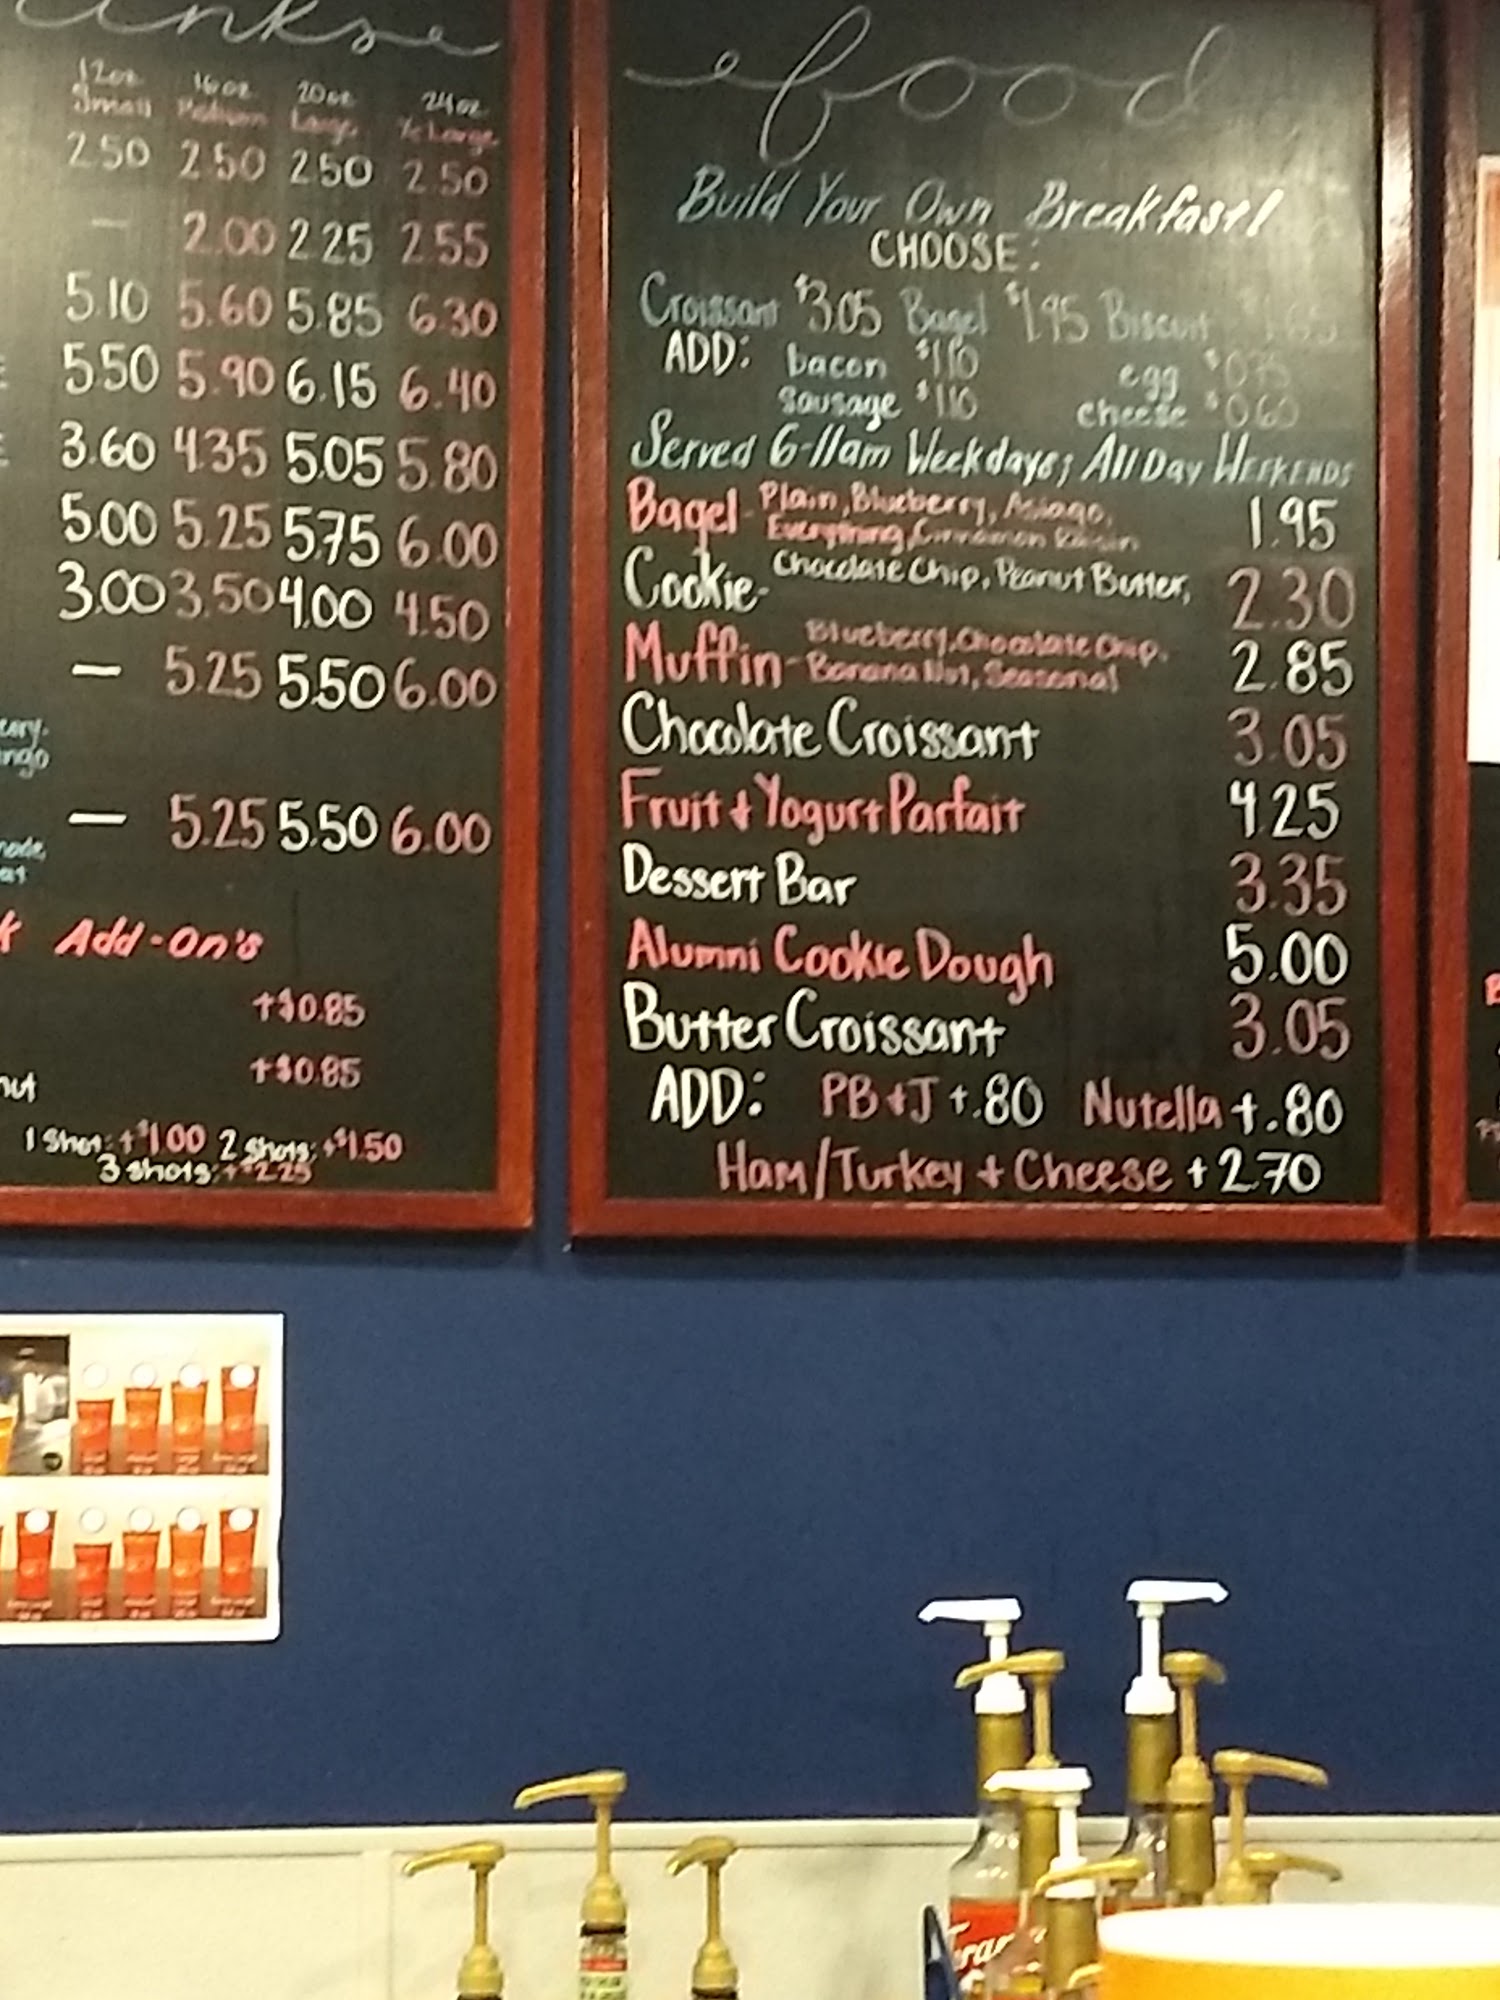 12oz 16oz 20oz 24oz
Small Medium Large X-Large
2.50 2.50 2.50 2.50
— 2.00 2.25 2.55
5.10 5.60 5.85 6.30
5.50 5.90 6.15 6.40
3.60 4.35 5.05 5.80
5.00 5.25 5.75 6.00
3.00 3.50 4.00 4.50
— 5.25 5.50 6.00
— 5.25 5.50 6.00
Add-On's
+$0.85
+$0.85
1 Shot: +$1.00 2 Shots: +$1.50
3 shots: +$2.25
food
Build Your Own Breakfast!
CHOOSE:
Croissant $3.05 Bagel $1.95 Biscuit
ADD: bacon $1.10 egg $0.75
sausage $1.10 cheese $0.60
Served 6-11am Weekdays; All Day WEEKENDS
Bagel - Plain, Blueberry, Asiago, 1.95
Everything, Cinnamon Raisin
Cookie - Chocolate Chip, Peanut Butter, 2.30
Muffin - Blueberry, Chocolate Chip, 2.85
Banana Nut, Seasonal
Chocolate Croissant 3.05
Fruit + Yogurt Parfait 4.25
Dessert Bar 3.35
Alumni Cookie Dough 5.00
Butter Croissant 3.05
ADD: PB+J +.80 Nutella +.80
Ham/Turkey + Cheese +2.70